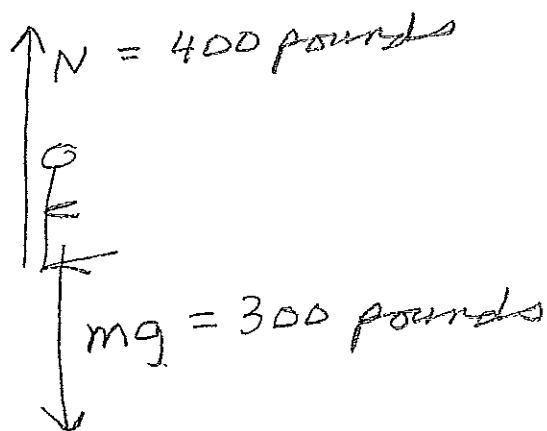 N = 400 pounds
mg = 300 pounds